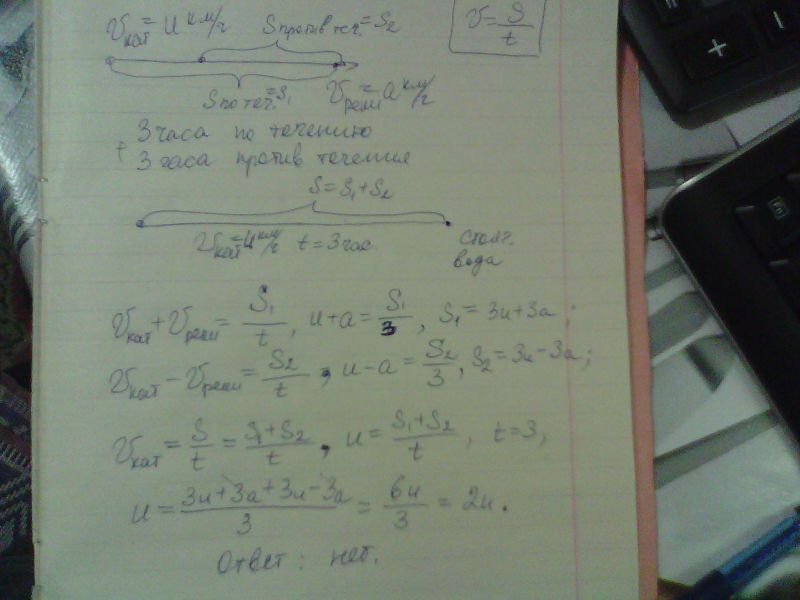 Vкат = u км/ч Sпротив теч. = S₂
V = S/t
Sпо теч. = S₁ Vреки = a км/ч
3 часа по течению
+ 3 часа против течения
S = S₁ + S₂
Vкат = u км/ч t = 3 час. стояч. вода
Vкат + Vреки = S₁/t, u + a = S₁/3, S₁ = 3u + 3a;
Vкат − Vреки = S₂/t, u − a = S₂/3, S₂ = 3u − 3a;
Vкат = S/t = S₁ + S₂/t, u = S₁ + S₂/t, t = 3,
u = 3u + 3a + 3u − 3a/3 = 6u/3 = 2u.
Ответ: нет.